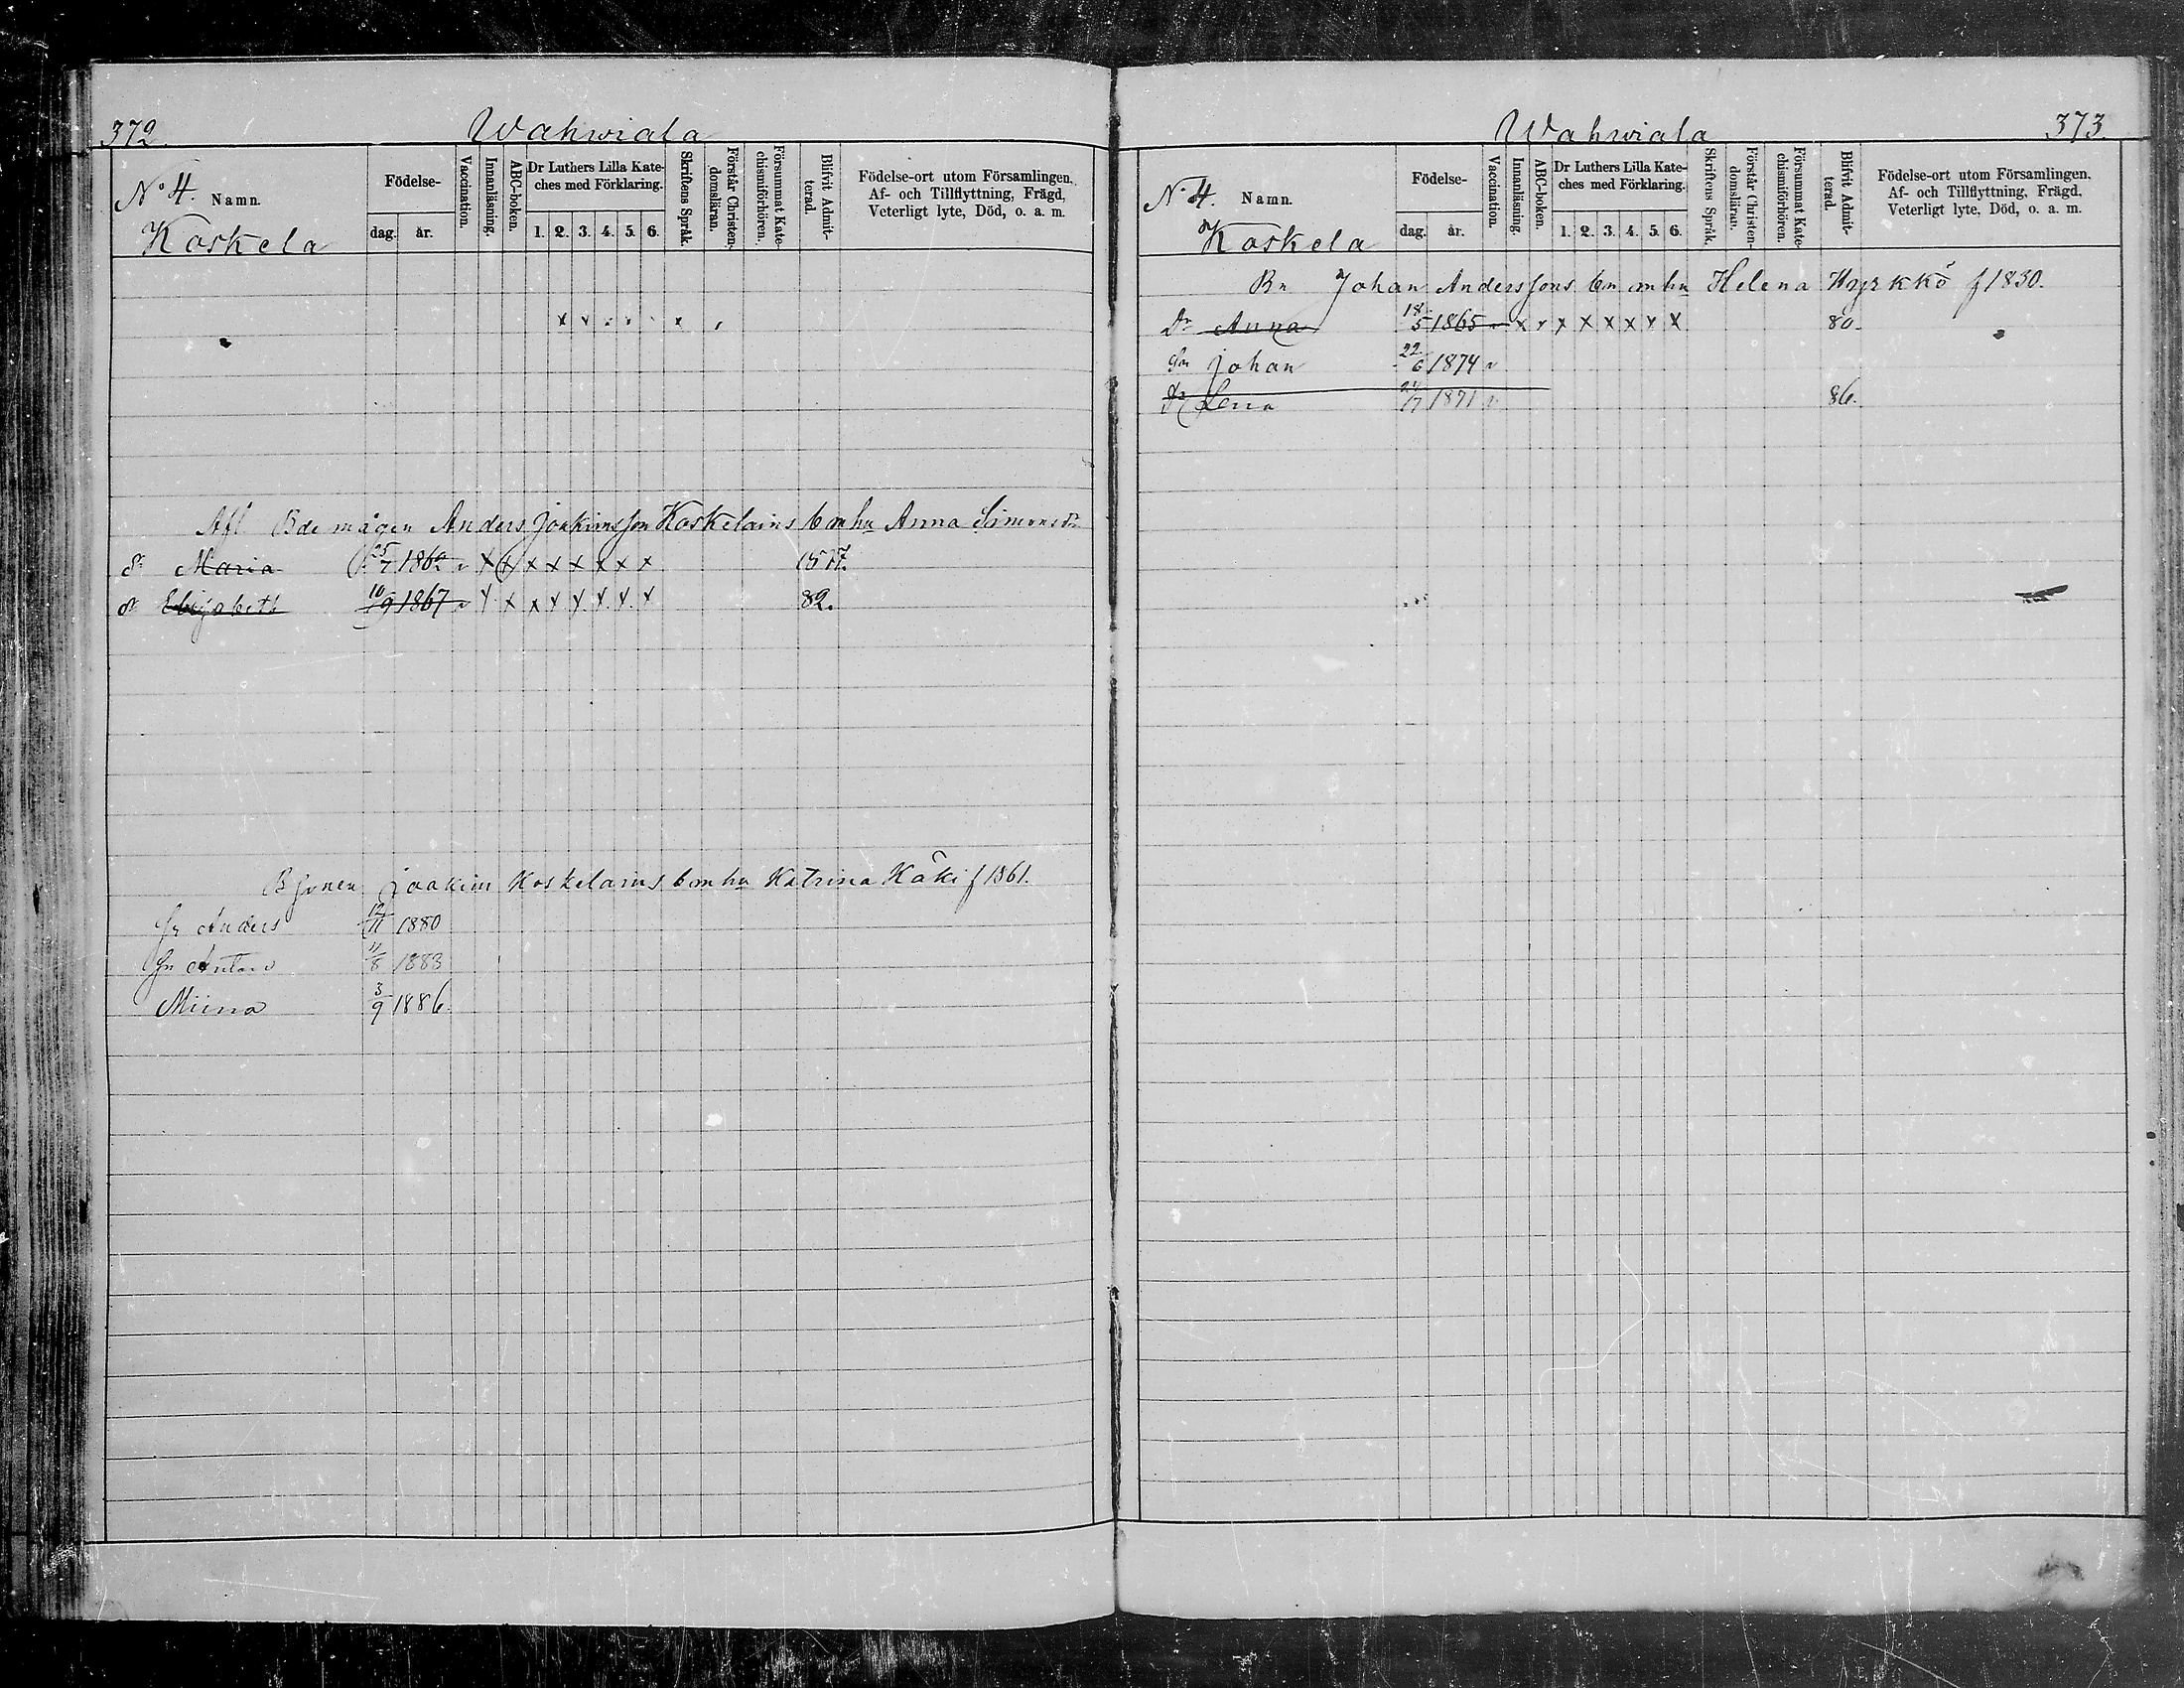 372.
Wahwiala
N:o 4. Namn.
Koskela
Födelse-
dag. år.
Vaccination.
Innanläsning.
ABC-boken.
Dr Luthers Lilla Kate-
ches med Förklaring.
1. 2. 3. 4. 5. 6.
Skriftens Språk.
Förstår Christen-
domsläran.
Försummat Kate-
chismiförhören.
Blifvit Admit-
terad.
Födelse-ort utom Församlingen,
Af- och Tillflyttning, Frägd,
Veterligt lyte, Död, o. a. m.
Afl. Bde mågen Anders Joakimsson Koskelains barn hu Anna Simonsdr
dr Maria 25/7 1862 v x x x x x x x x 77.
dr Elisabeth 10/9 1867 v x x x x x x x x 82.
B sonen Joakim Koskelains barn hu Katrina Käki f 1861.
Sn Anders 12/11 1880
Sn Anton 11/8 1883
Miina 3/9 1886.
Wahwiala
373.
N:o 4. Namn.
Koskela
Födelse-
dag. år.
Vaccination.
Innanläsning.
ABC-boken.
Dr Luthers Lilla Kate-
ches med Förklaring.
1. 2. 3. 4. 5. 6.
Skriftens Språk.
Förstår Christen-
domsläran.
Försummat Kate-
chismiförhören.
Blifvit Admit-
terad.
Födelse-ort utom Församlingen,
Af- och Tillflyttning, Frägd,
Veterligt lyte, Död, o. a. m.
Bn Johan Anderssons barn hu Helena Hyrkkö f 1830.
Dr Anna 18/5 1865 v x x x x x x x x 80.
Sn Johan 22/6 1874 v
dr Lena 1871 v 86.